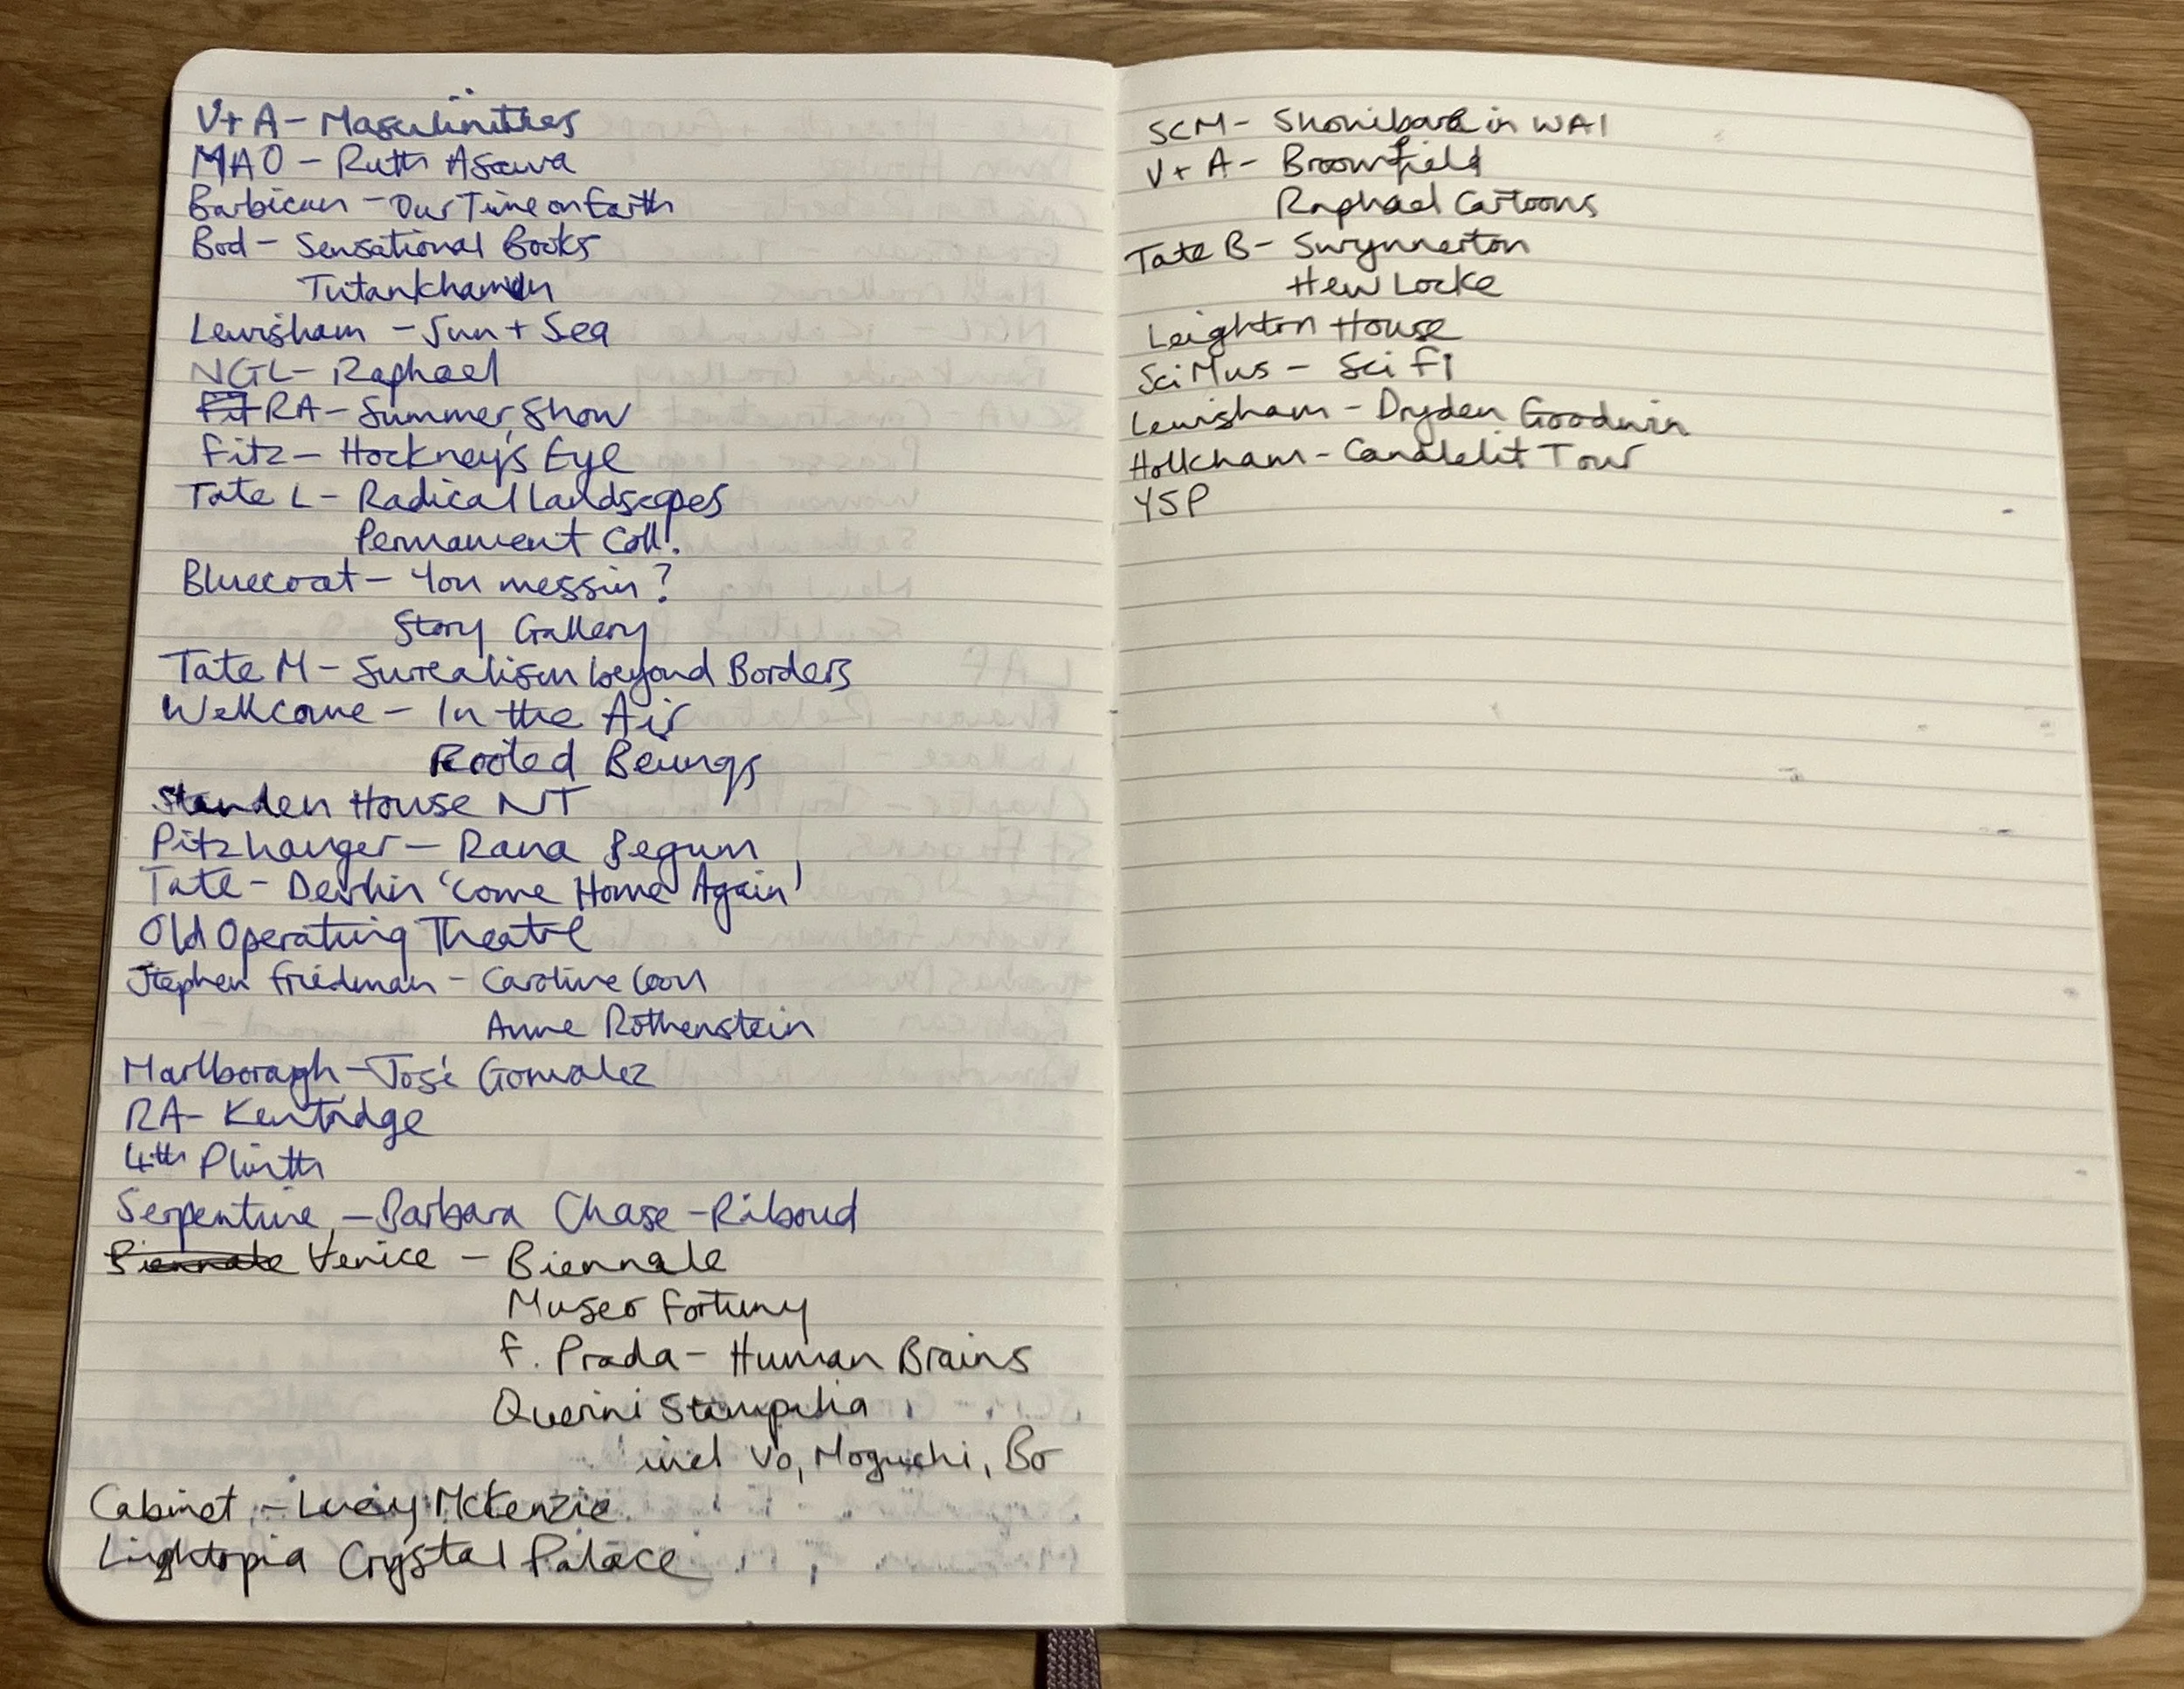 V+A - Masculinities
MAO - Ruth Asawa
Barbican - Our Time on Earth
Bod - Sensational Books
Tutankhamun
Lewisham - Sun + Sea
NGL - Raphael
Fit RA - Summer Show
Fitz - Hockney's Eye
Tate L - Radical Landscapes
Permanent Coll.
Bluecoat - You messin?
Story Gallery
Tate M - Surrealism beyond Borders
Wellcome - In the Air
Rooted Beings
Standen House NT
Pitzhanger - Rana Begum
Tate - Devlin 'Come Home Again'
Old Operating Theatre
Stephen Friedman - Caroline Coon
Anne Rothenstein
Marlborough - José Gonzalez
RA - Kentridge
4th Plinth
Serpentine - Barbara Chase-Riboud
Biennale Venice - Biennale
Museo Fortuny
F. Prada - Human Brains
Querini Stampalia
incl Vo, Noguchi, Bo
Cabinet - Lucy McKenzie
Lightopia Crystal Palace
SCM - Shonibare in WAI
V+A - Broomfield
Raphael Cartoons
Tate B - Swynnerton
Hew Locke
Leighton House
Sci Mus - Sci Fi
Lewisham - Dryden Goodwin
Holkham - Candlelit Tour
YSP